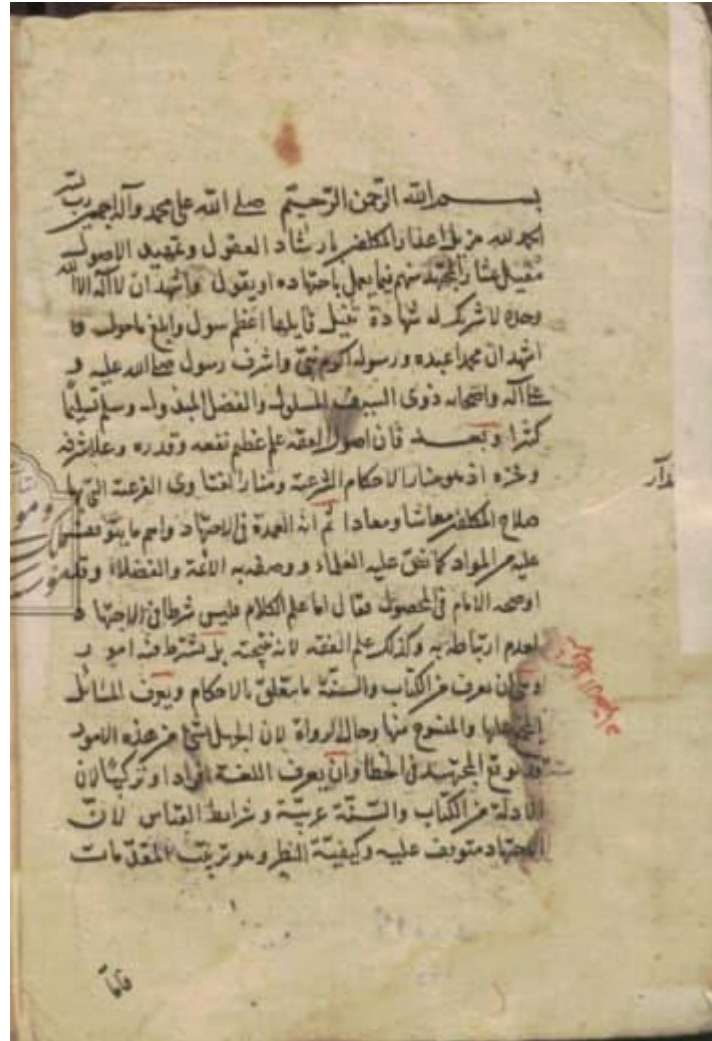 بسم الله الرحمن الرحيم صلى الله على محمد وآله اجمعين رب يسر
الحمد لله مزيل اعذار المكلفين بارشاد العقول وتمهيد الاصول
مقيل عثار المجتهد منهم فيما يعمل باجتهاده او يقول واشهد ان لا اله الا الله
وحده لا شريك له شهادة تنيل قايلها اعظم سول وابلغ مامول وا
اشهد ان محمدا عبده ورسوله اكرم نبي واشرف رسول صلى الله عليه و
على آله واصحابه ذوى السيوف المسلولة والفضل المبذول وسلم تسليما
كثيرا وبعد فان اصول الفقه علم عظم نفعه وقدره وعلا شرفه
وفخره اذ هو مثار الاحكام الشرعية ومنار الفتاوى الفرعية التى بها
صلاح المكلفين معاشا ومعادا ثم انه العمدة فى الاجتهاد واهم ما يتوقف
عليه من المواد كما نص عليه العلماء ووصفه به الائمة والفضلاء وقد
اوضحه الامام فى المحصول فقال اما علم الكلام فليس شرطا فى الاجتهاد
لعدم ارتباطه به وكذلك علم الفقه لانه نتيجته بل يشترط فيه امور
وهى ان يعرف من الكتاب والسنة ما يتعلق بالاحكام ويعرف المسائل
المجمع عليها والمنسوخ منها وحال الرواة لان الجهل بشئ من هذه الامور
قد يوقع المجتهد فى الخطا وان يعرف اللغة افرادا وتركيبا لان
الادلة من الكتاب والسنة عربية وشرائط القياس لان
الاجتهاد متوقف عليه وكيفية النظر وهو ترتيب المقدمات